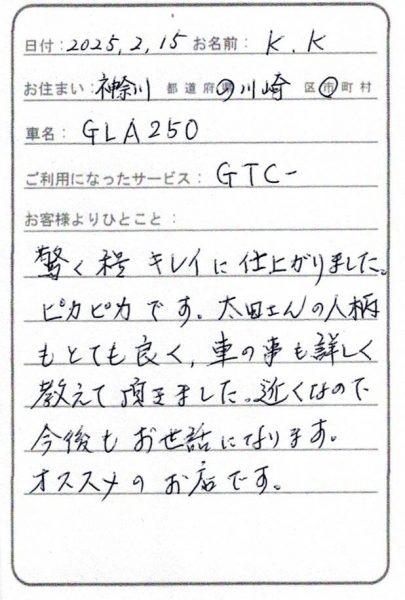 日付：2025.2.15 お名前：K.K
お住まい：神奈川 都道府県 川崎 区市町村
車名：GLA250
ご利用になったサービス：GTC-
お客様よりひとこと：
驚く程 キレイに仕上がりました。
ピカピカです。太田さんの人柄
もとても良く、車の事も詳しく
教えて頂きました。近くなので
今後もお世話になります。
オススメのお店です。